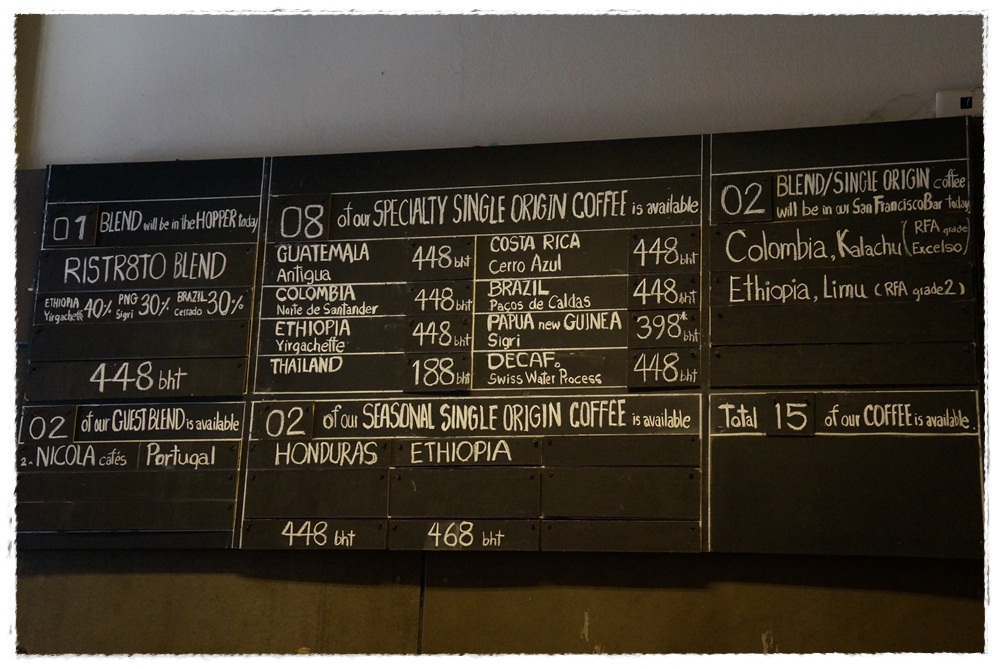 01 BLEND will be in the HOPPER today
RISTR8TO BLEND
ETHIOPIA Yirgacheffe 40% PNG Sigri 30% BRAZIL Cerrado 30%
448 bht
02 of our GUEST BLEND is available
2. NICOLA cafés Portugal
08 of our SPECIALTY SINGLE ORIGIN COFFEE is available
GUATEMALA 448 bht
Antigua
COLOMBIA 448 bht
Norte de Santander
ETHIOPIA 448 bht
Yirgacheffe
THAILAND 188 bht
COSTA RICA 448 bht
Cerro Azul
BRAZIL 448 bht
Paços de Caldas
PAPUA new GUINEA 398* bht
Sigri
DECAF. 448 bht
Swiss Water Process
02 of our SEASONAL SINGLE ORIGIN COFFEE is available
HONDURAS ETHIOPIA
448 bht 468 bht
02 BLEND/SINGLE ORIGIN coffee
will be in our San Francisco Bar today
Colombia, Kalachu (RFA grade Excelso)
Ethiopia, Limu (RFA grade 2)
Total 15 of our COFFEE is available.